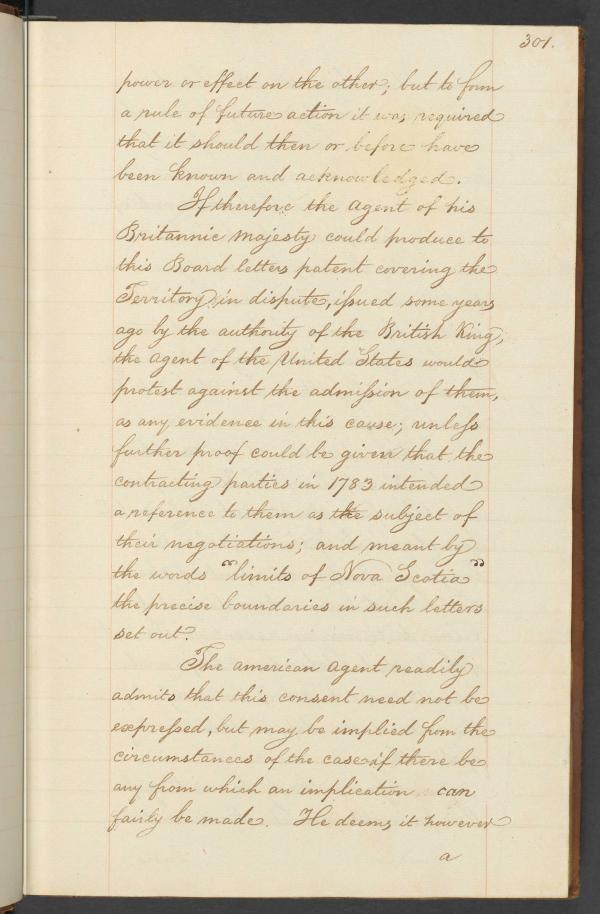 301.
power or effect on the other; but to form
a rule of future action it was required
that it should then or before have
been known and acknowledged.
If therefore the Agent of his
Britannic Majesty could produce to
this Board letters patent covering the
Territory in dispute, issued some years
ago by the authority of the British King,
the Agent of the United States would
protest against the admission of them,
as any evidence in this cause; unless
further proof could be given that the
contracting parties in 1783 intended
a reference to them as the subject of
their negotiations; and meant by
the words "limits of Nova Scotia"
the precise boundaries in such letters
set out.
The american Agent readily
admits that this consent need not be
expressed, but may be implied from the
circumstances of the case if there be
any from which an implication can
fairly be made. He deems it however
a